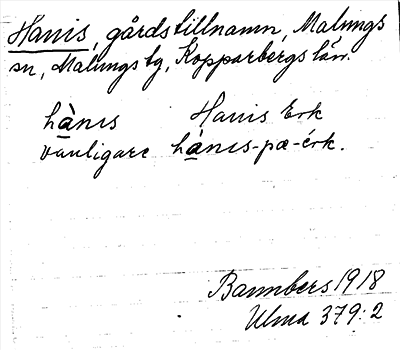 Hanis, gårdstillnamn, Malungs
sn, Malungs tg, Kopparbergs län.
hànɩs Hanis Erk
vanligare hànɩs-pæ-érk.
Bannbers 1918
Ulma 379:2